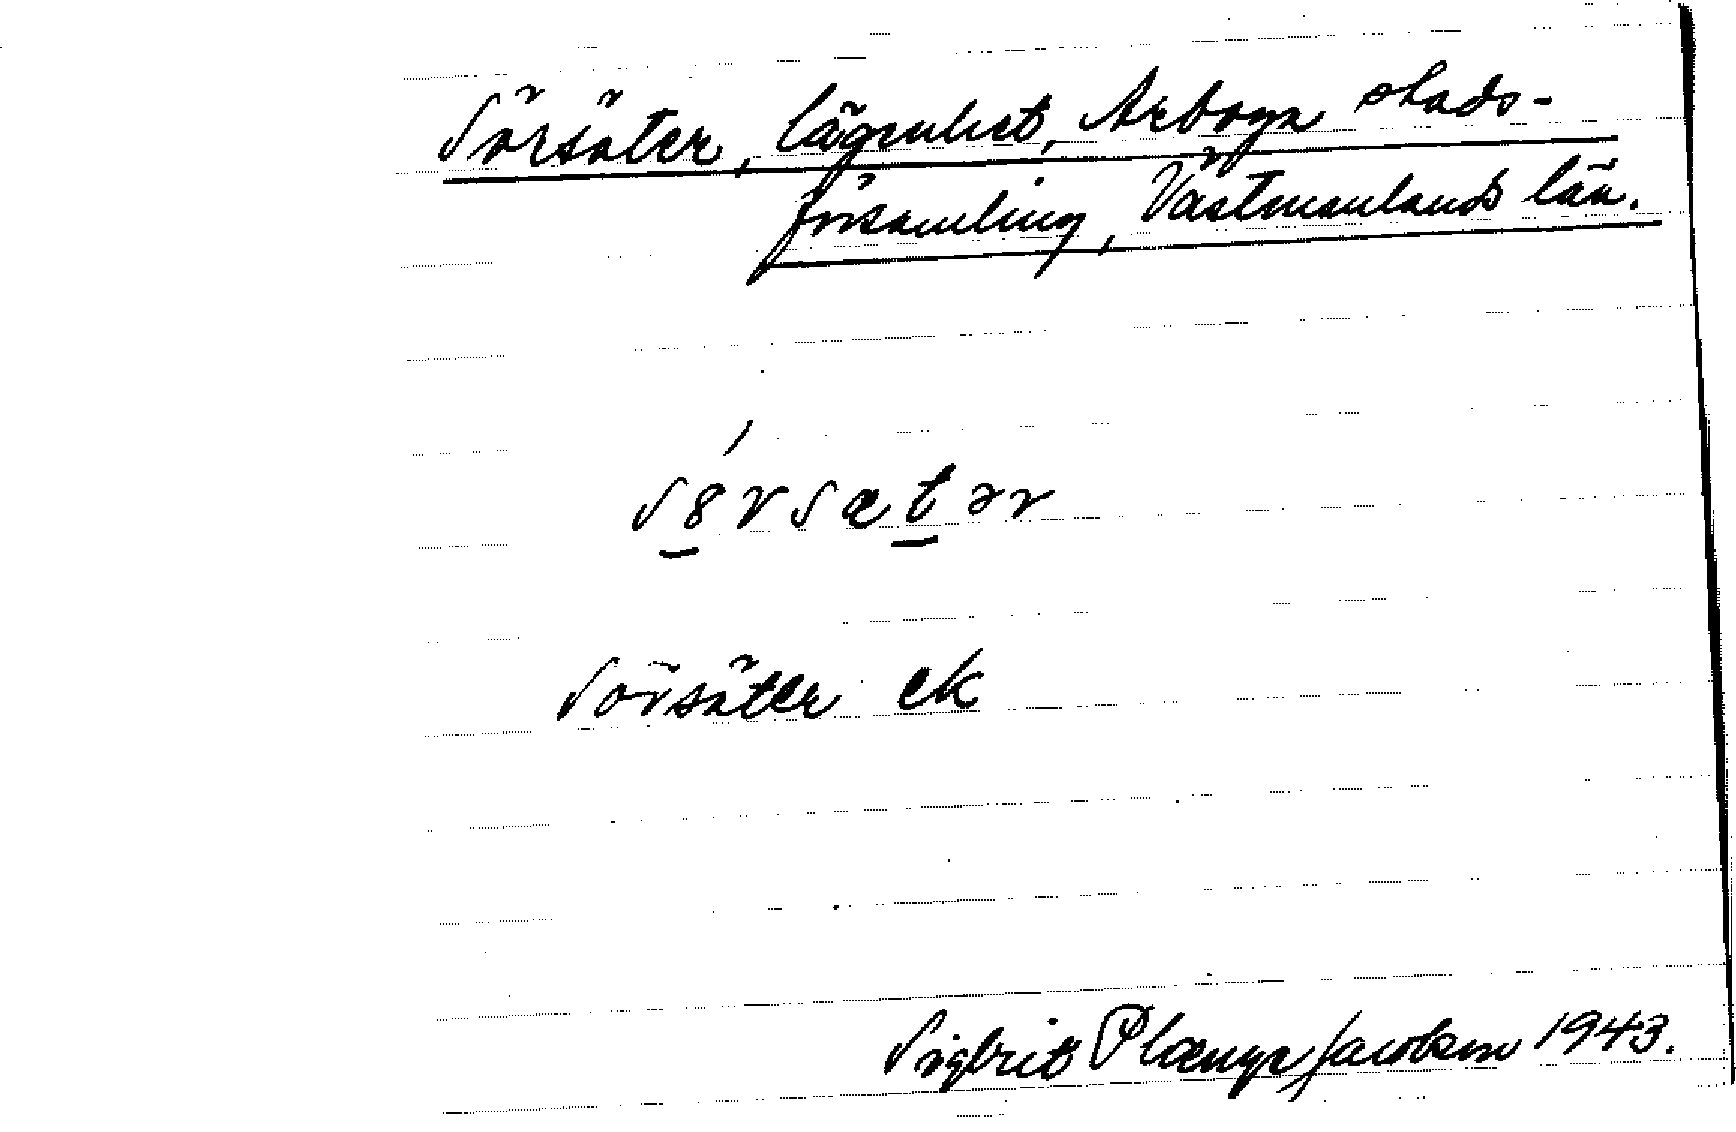 Sörsäter, lägenhet, Arboga stads-
församling, Västmanlands län.
sörsætər
Sörsäter ek
Sigbrit Plænge Jacobson 1943.